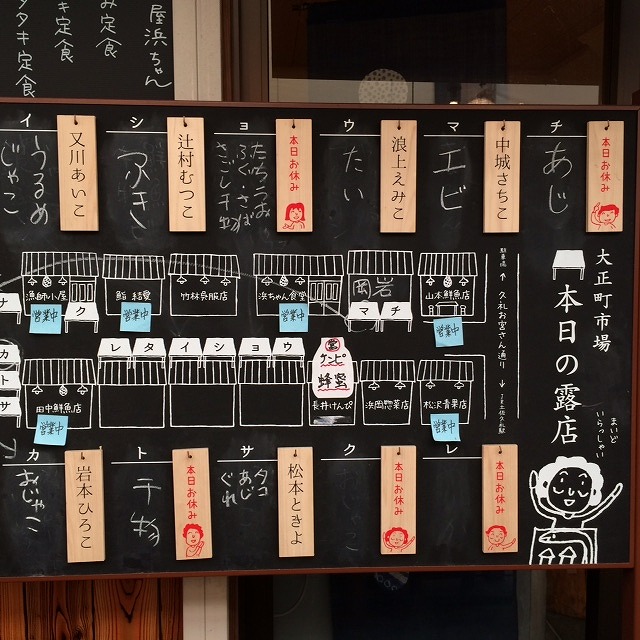 屋浜ちゃん
み定食
キ定食
タタキ定食
大正町市場
本日の露店
まいど
いらっしゃい
チ
本日お休み
あじ
マ
中城さちこ
エビ
ウ
浪上えみこ
たい
ヨ
本日お休み
さごし干物
シ
辻村むつこ
ふき
イ
又川あいこ
うるめ
じゃこ
漁師小屋
営業中
鮨 結愛
営業中
竹林呉服店
浜ちゃん食堂
営業中
岡岩
山本鮮魚店
営業中
サ
ク
マ
チ
駐車場
↑
久礼お宮さん通り
↓
カ
ト
サ
レ
タ
イ
シ
ョ
ウ
田中鮮魚店
営業中
ケンピ
蜂蜜
長井けんぴ
浜岡惣菜店
松沢青果店
営業中
レ
本日お休み
ク
本日お休み
サ
松本ときよ
タコ
あじ
ぐれ
ト
本日お休み
干物
カ
岩本ひろこ
おじゃこ